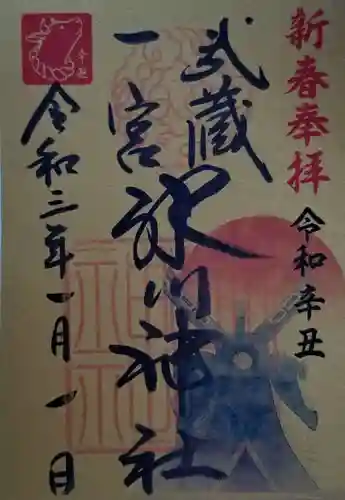 新春奉拝
令和辛丑
武蔵
一宮氷川神社
令和三年一月一日